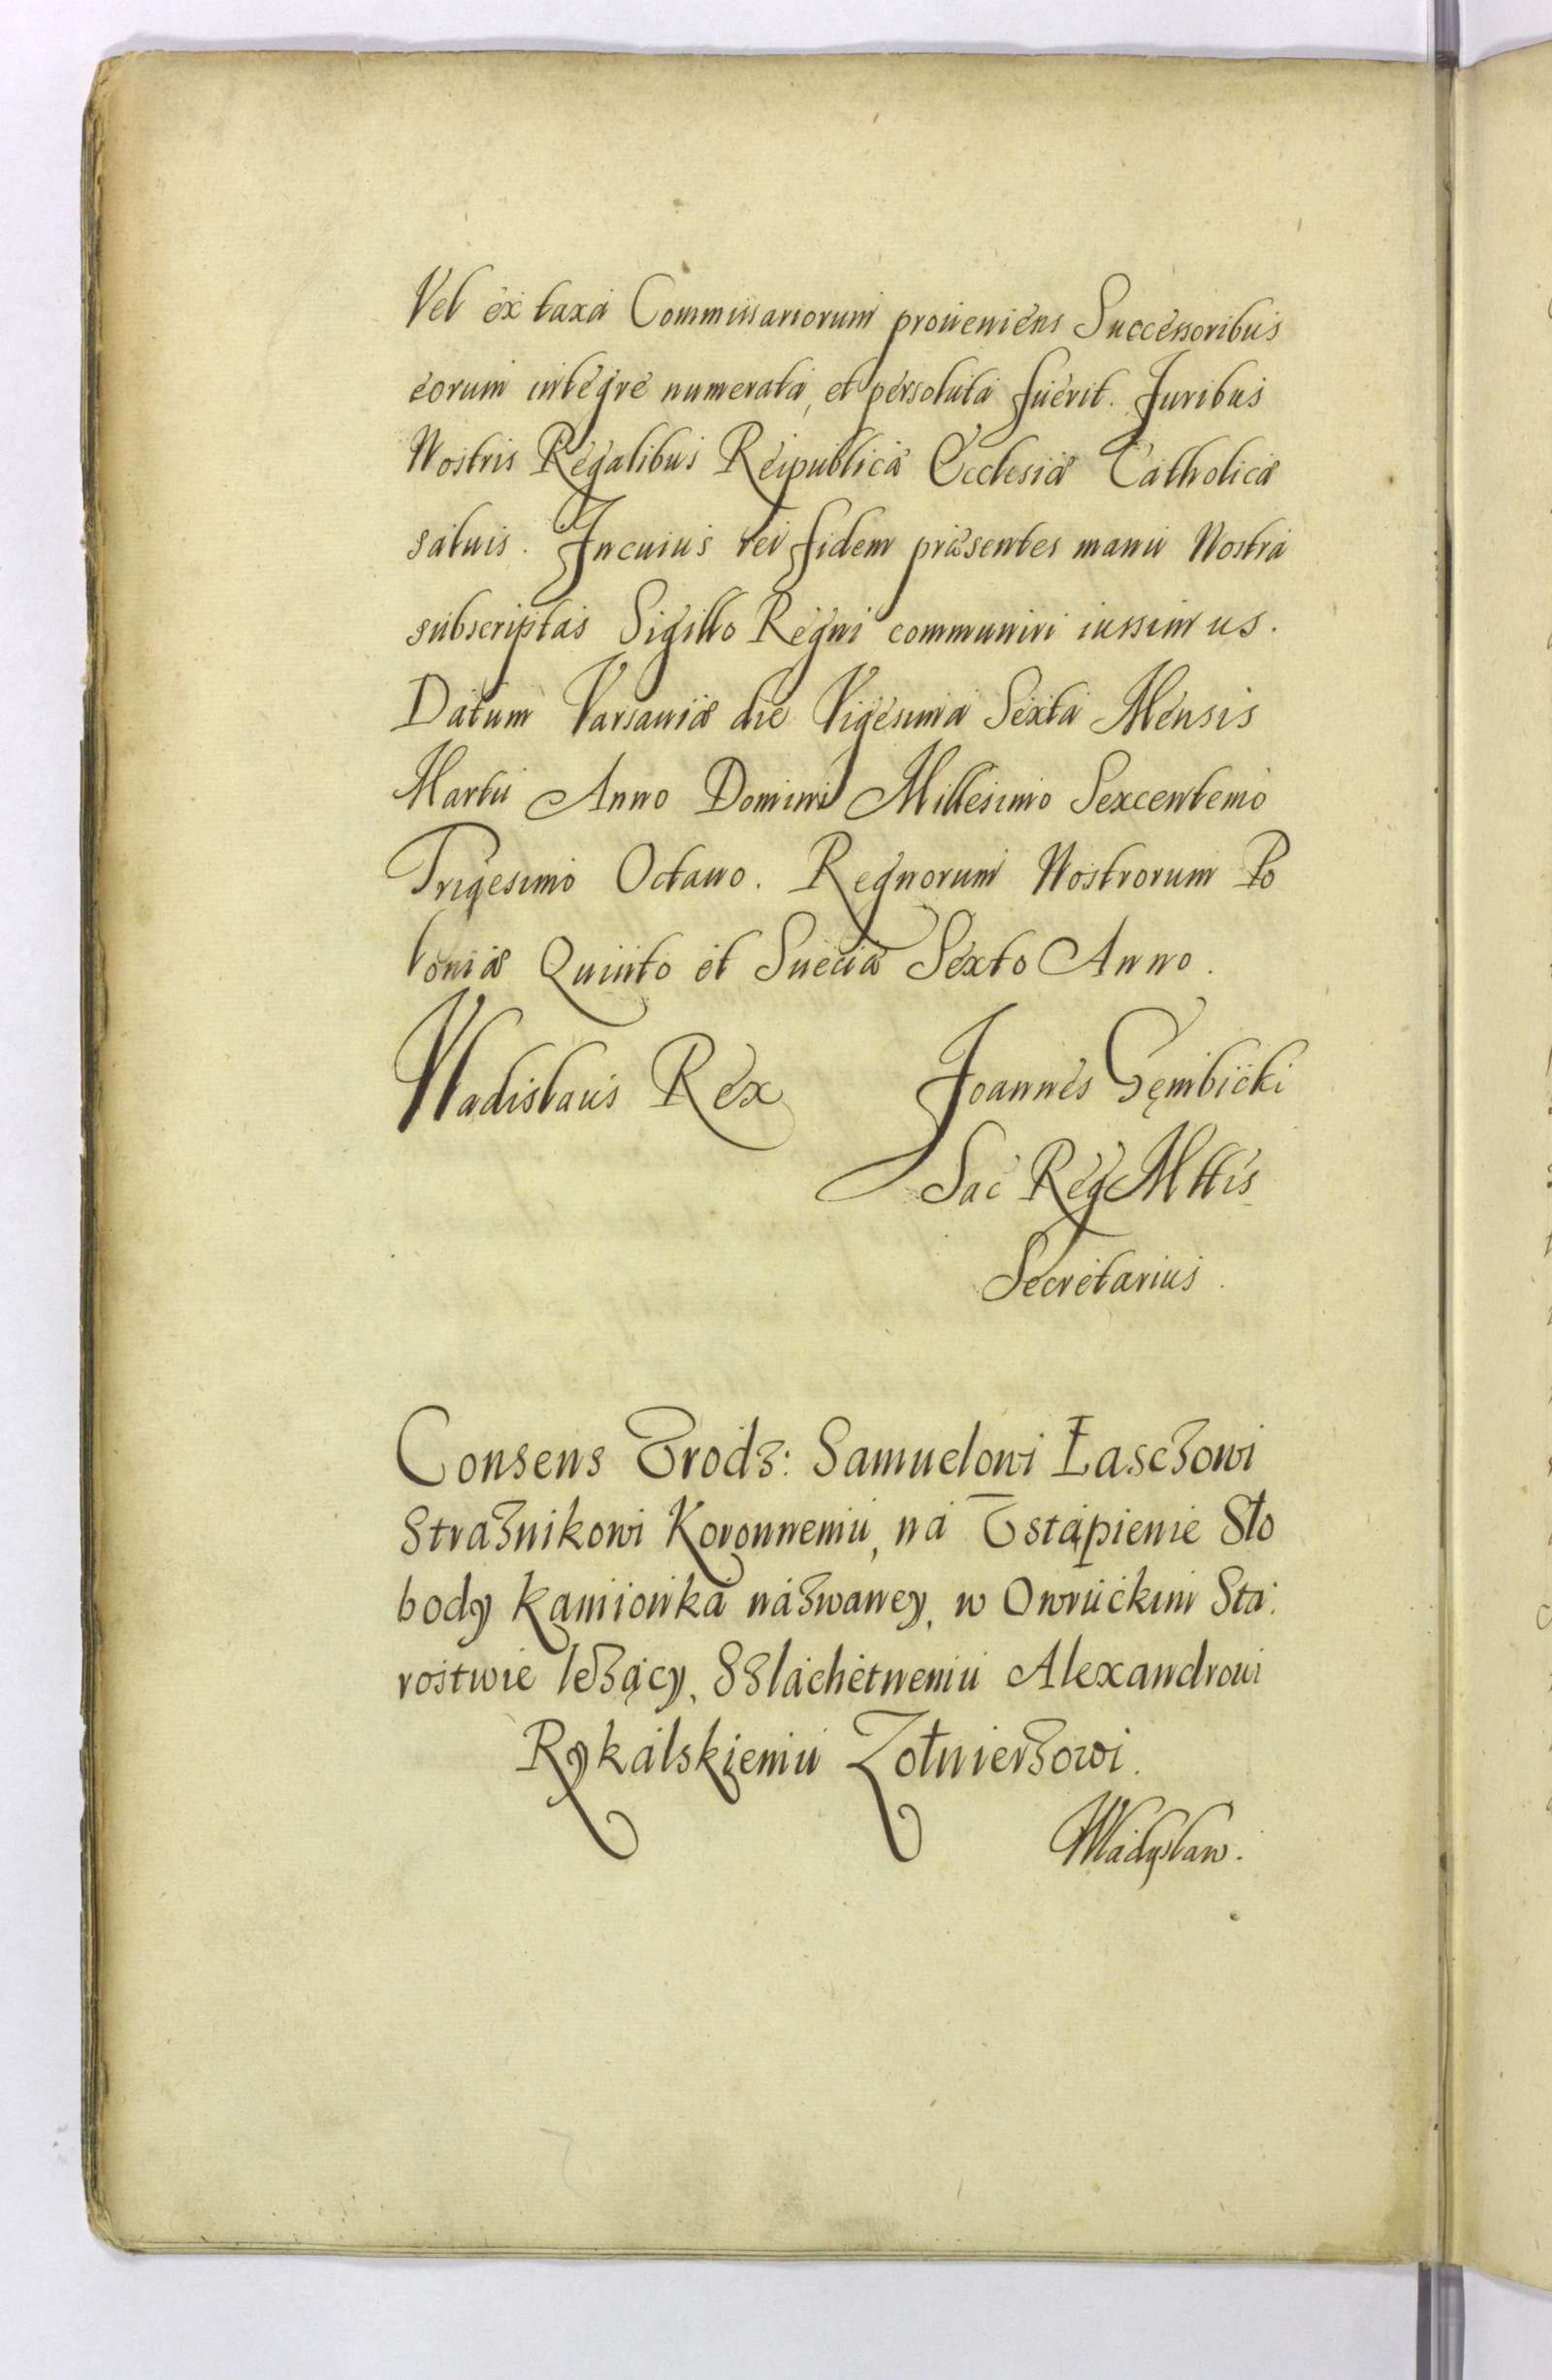 Vel ex taxa Commissariorum proueniens Successoribus
eorum integre numerata, et persoluta fuerit. Juribus
Nostris Regalibus Reipublicæ Ecclesiæ Catholicæ
saluis. Incuius rei fidem præsentes manu Nostra
subscriptas Sigillo Regni communiri iussimus.
Datum Varsauiæ die Vigesima Sexta Mensis
Martii Anno Domini Millesimo Sexcentemo
Trigesimo Octauo. Regnorum Nostrorum Po
loniæ Quinto et Sueciæ Sexto Anno.
Vladislaus Rex Joannes Gęmbicki
Sac Reg Mttis
Secretarius.
Consens Vrodz: Samuelowi Łasczowi
Strażnikowi Koronnemu, na Vstąpienie Sło
body Kamionka názwaney, w Owruckim Sta:
rostwie leżący, Szláchetnemu Alexandrowi
Rykalskiemu Zołnierzowi.
Władysław.